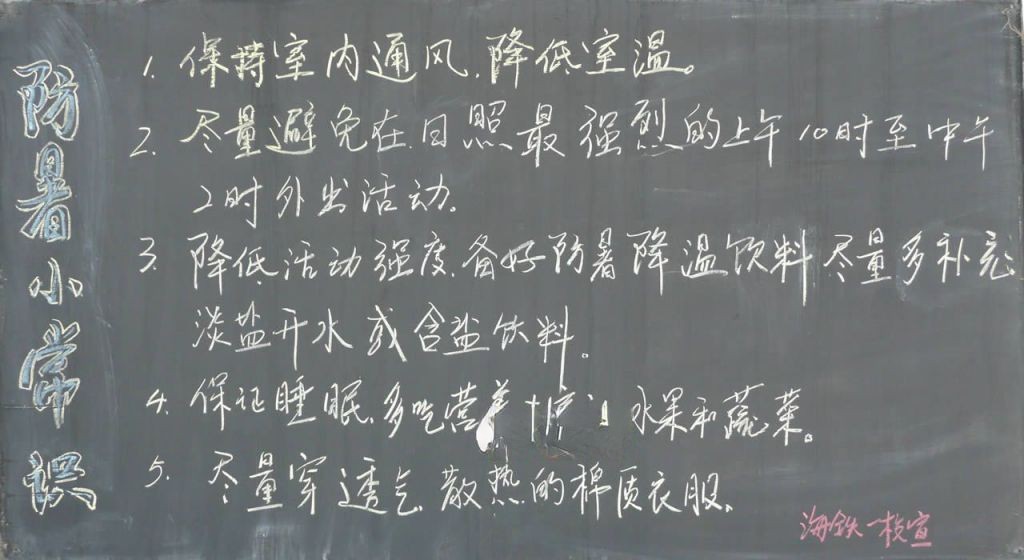 防暑小常识
1. 保持室内通风.降低室温。
2. 尽量避免在日照最强烈的上午10时至中午
2时外出活动。
3. 降低活动强度.备好防暑降温饮料尽量多补充
淡盐开水或含盐饮料。
4. 保证睡眠.多吃营养 水果和蔬菜。
5. 尽量穿透气散热的棉质衣服。
海铁一校宣